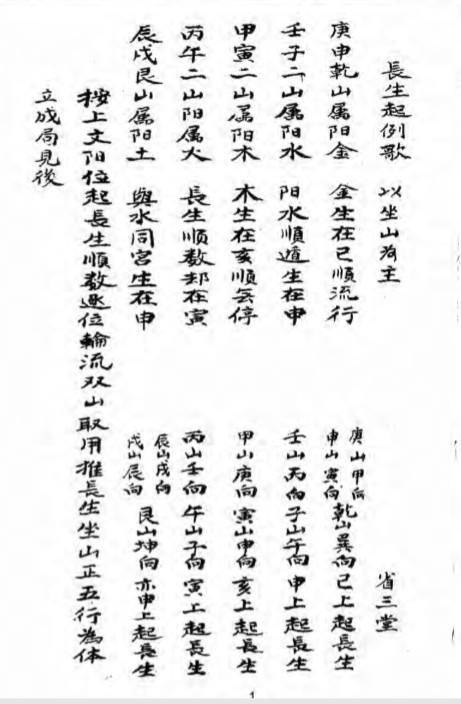 長生起例歌 以坐山為主 省三堂
庚申乾山属阳金 金生在巳順流行
庚山甲向
申山寅向
乾山巽向巳上起長生
壬子二山属阳水 阳水順遁生在申
壬山丙向子山午向申上起長生
甲寅二山属阳木 木生在亥順無停
甲山庚向寅山申向亥上起長生
丙午二山阳属火 長生順数却在寅
丙山壬向午山子向寅上起長生
辰戌艮山属阳土 與水同宮生在申
辰山戌向
戌山辰向
艮山坤向亦申上起長生
按上文阳位起長生順数逐位輪流双山取用推長生坐山正五行為体
立成局見後
1